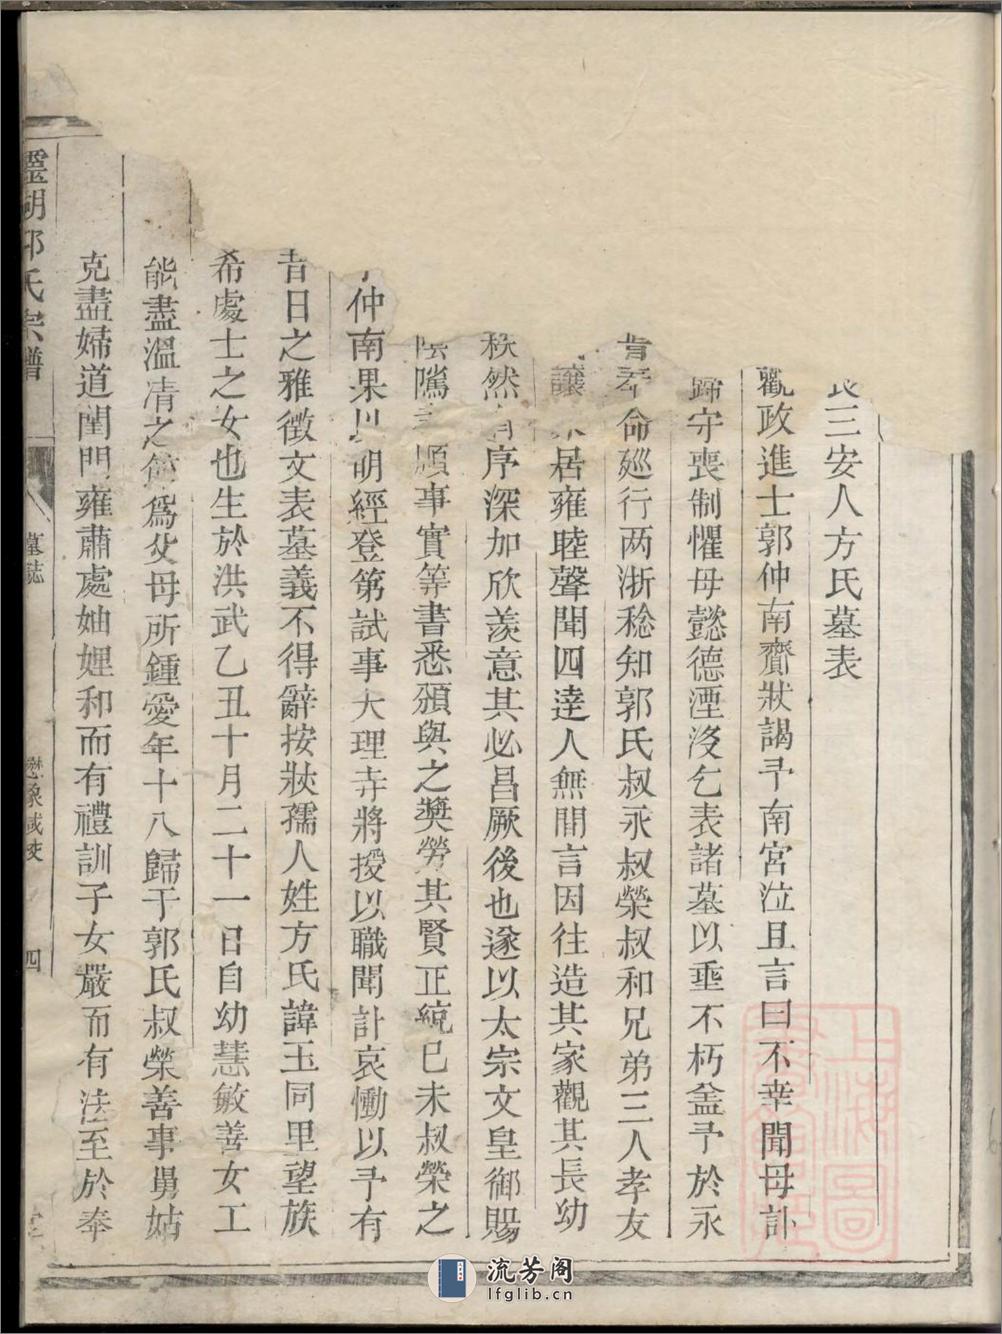 三安人方氏墓表
觀政進士郭仲南齎狀謁予南宮泣且言曰不幸聞母訃
歸守喪制懼母懿德湮沒乞表諸墓以垂不朽盖予於永
命廵行两浙稔知郭氏叔永叔榮叔和兄弟三人孝友
讓居雍睦聲聞四逹人無間言因往造其家觀其長幼
秩然有序深加欣羡意其必昌厥後也遂以太宗文皇御賜
陰隲順事實等書悉頒與之獎勞其賢正統已未叔榮之
仲南果以明經登第試事大理寺將授以職聞訃哀慟以予有
昔日之雅徵文表墓義不得辭按狀孺人姓方氏諱玉同里望族
希處士之女也生於洪武乙丑十月二十一日自幼慧敏善女工
能盡溫凊之節爲父母所鍾愛年十八歸于郭氏叔榮善事舅姑
克盡婦道閨門雍肅處妯娌和而有禮訓子女嚴而有法至於奉
氏宗譜
墓誌
四
上海圖
流芳阁
lfglib.cn